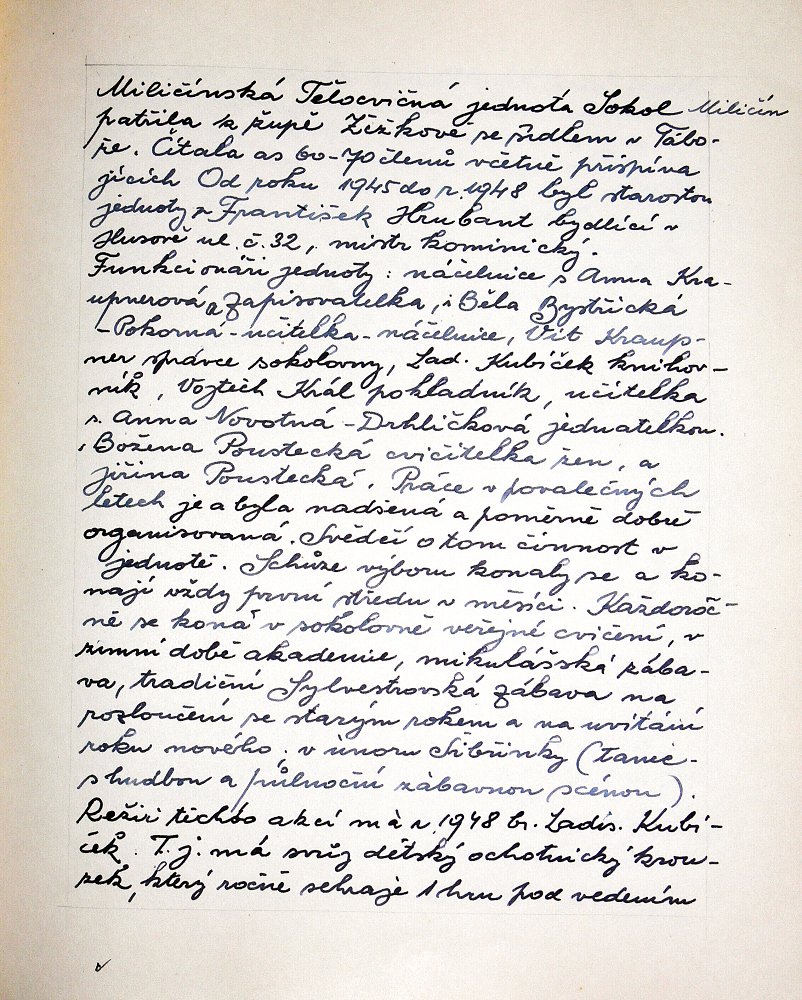 Miličínská Tělocvičná jednota Sokol Miličín
patřila k župě Žižkově se sídlem v Tábo-
ře. Čítala as 60-70 členů včetně přispíva
jících Od roku 1945 do r. 1948 byl starostou
jednoty František Hrubant bydlící v
Husově ul. č. 32, mistr kominický.
Funkcionáři jednoty: náčelnice s Anna Kra-
upnerová a zapisovatelka, i Běla Bystřická
-Pokorná-učitelka-náčelnice, Vít Kraup-
ner správce sokolovny, Lad. Kubíček knihov-
ník, Vojtěch Král pokladník, učitelka
s. Anna Novotná-Drhličková jednatelkou.
Božena Poustecká cvičitelka žen, a
jiřina Poustecká. Práce v povalečných
letech je a byla nadšená a poměrně dobře
organisovaná. Svědčí o tom činnost v
jednotě. Schůze výboru konaly se a ko-
nají vždy první středu v měsíci. Každoroč-
ně se koná v sokolovně veřejné cvičení, v
zimní době akademie, mikulášská zába-
va, tradiční Sylvestrovská zábava na
rozloučení se starým rokem a na uvítání
roku nového, v únoru Šibřinky (tanec-
s hudbou a půlnoční zábavnou scénou).
Režii těchto akcí má r. 1948 br. Ladis. Kubí-
ček. T. j. má svůj dětský ochotnický krou-
žek, který ročně sehraje 1 hru pod vedením